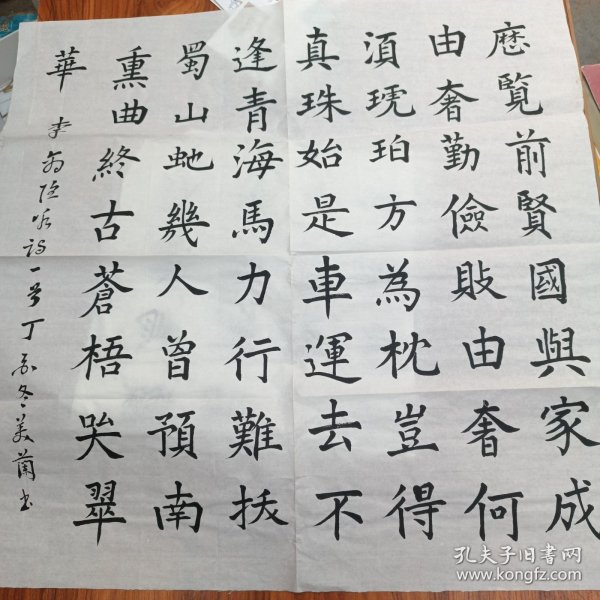 厯覽前賢國與家成
由奢勤儉敗由奢何
湏琥珀方為枕豈得
真珠始是車運去不
逢青海馬力行難拔
蜀山虵幾人曾預南
熏曲終古蒼梧哭翠
華
李商隐咏诗一首丁亥冬美蘭书
孔夫子旧书网
www.kongfz.com